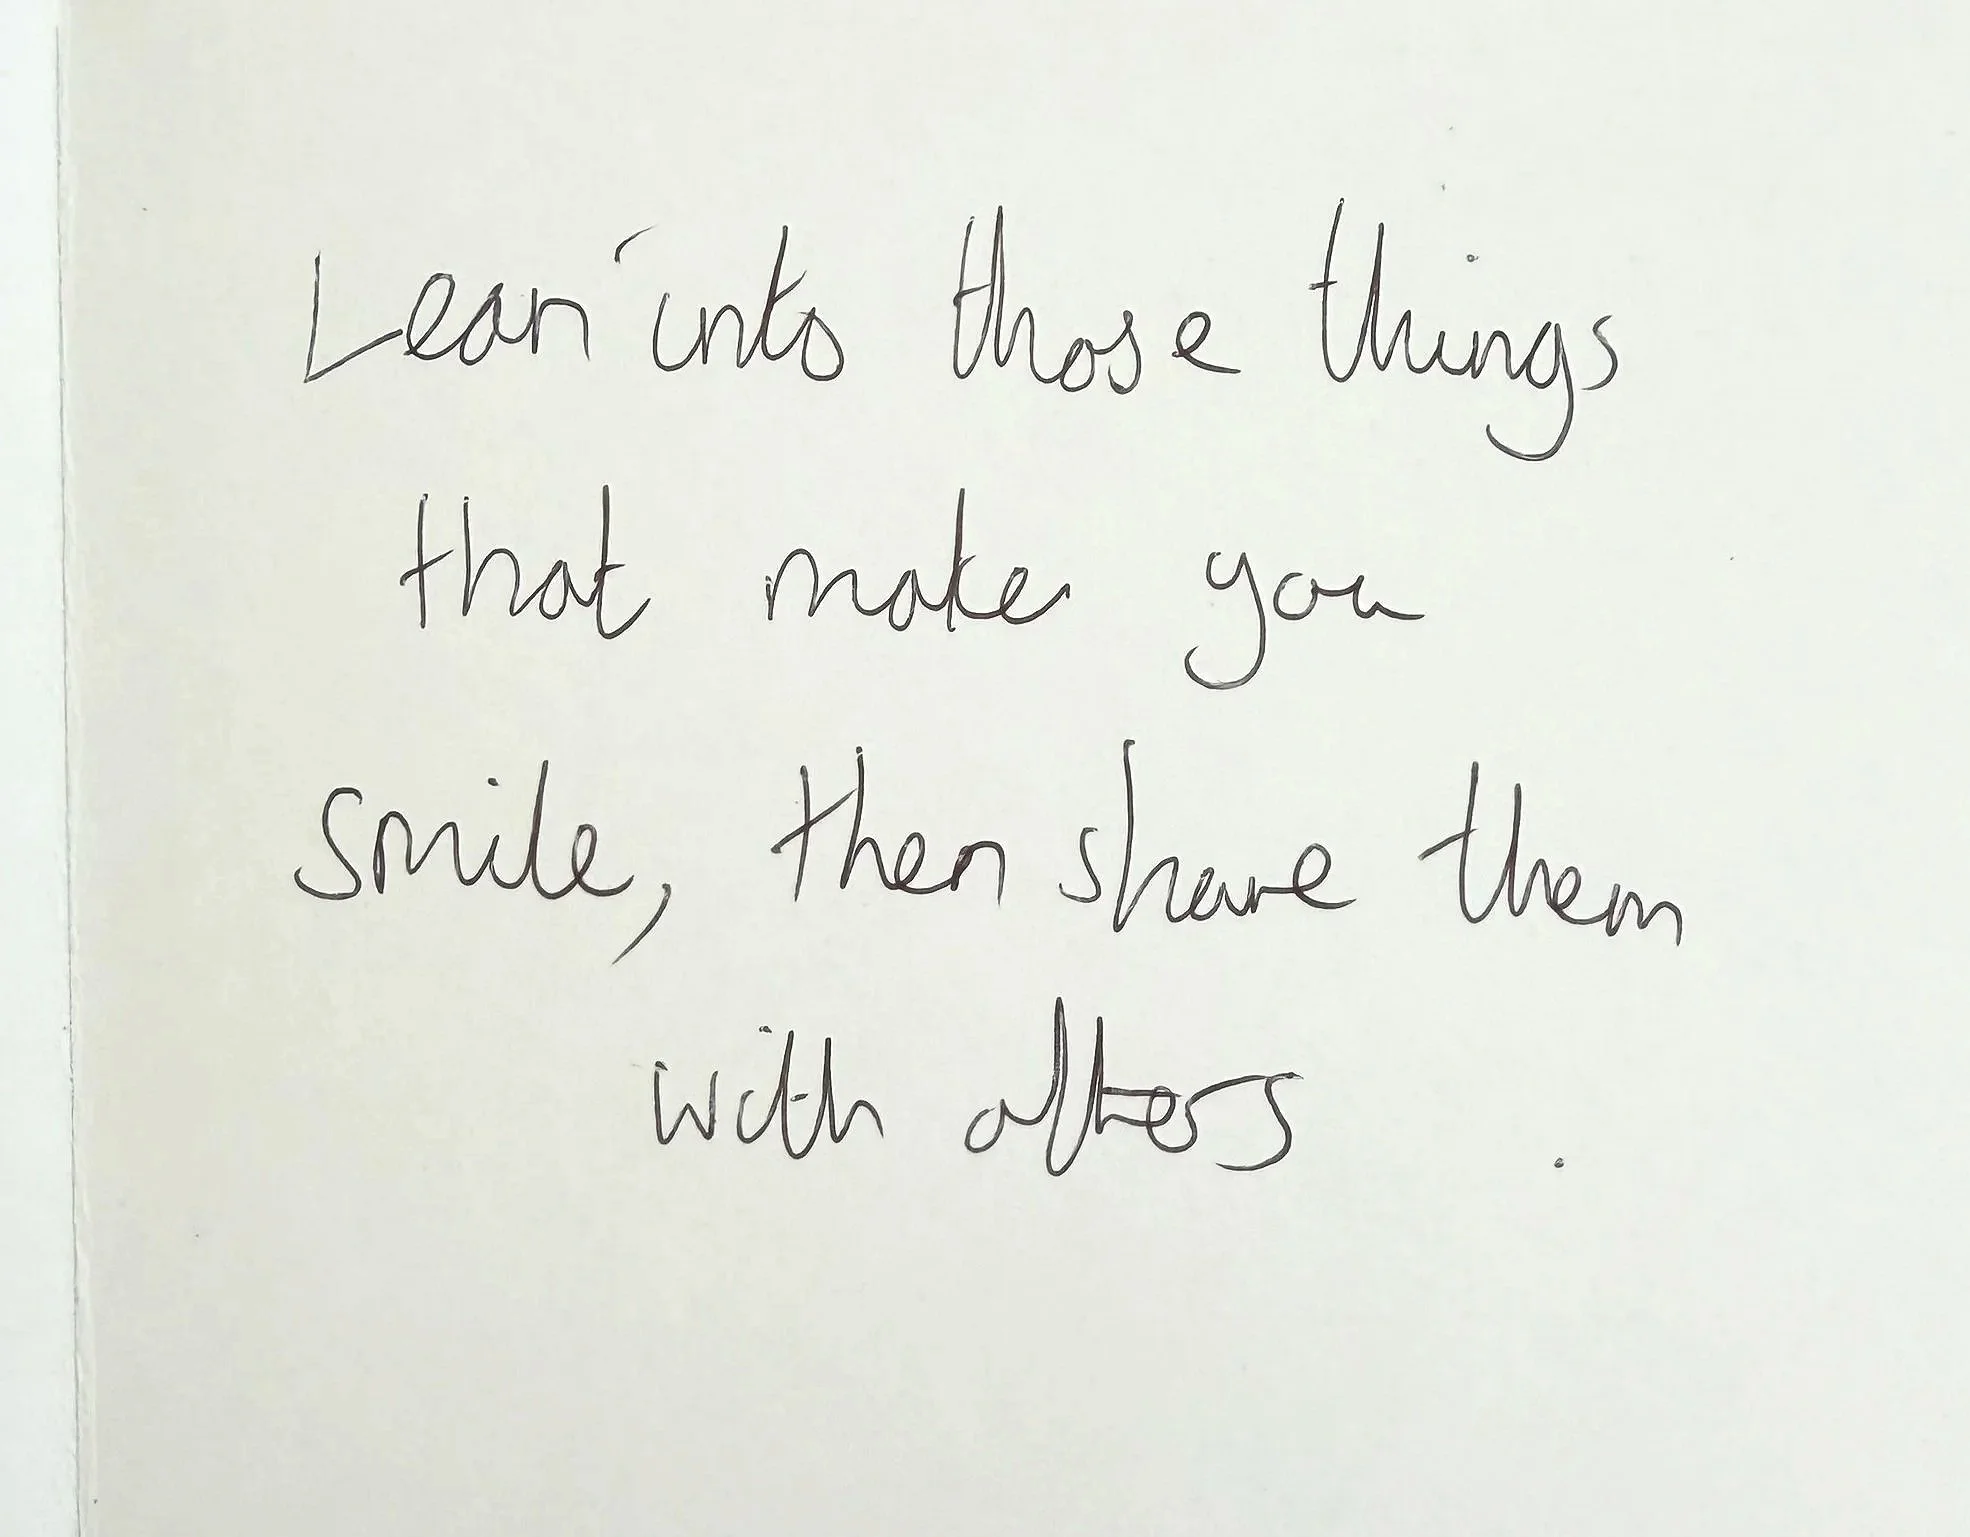 Lean into those things
that make you
smile, then share them
with others